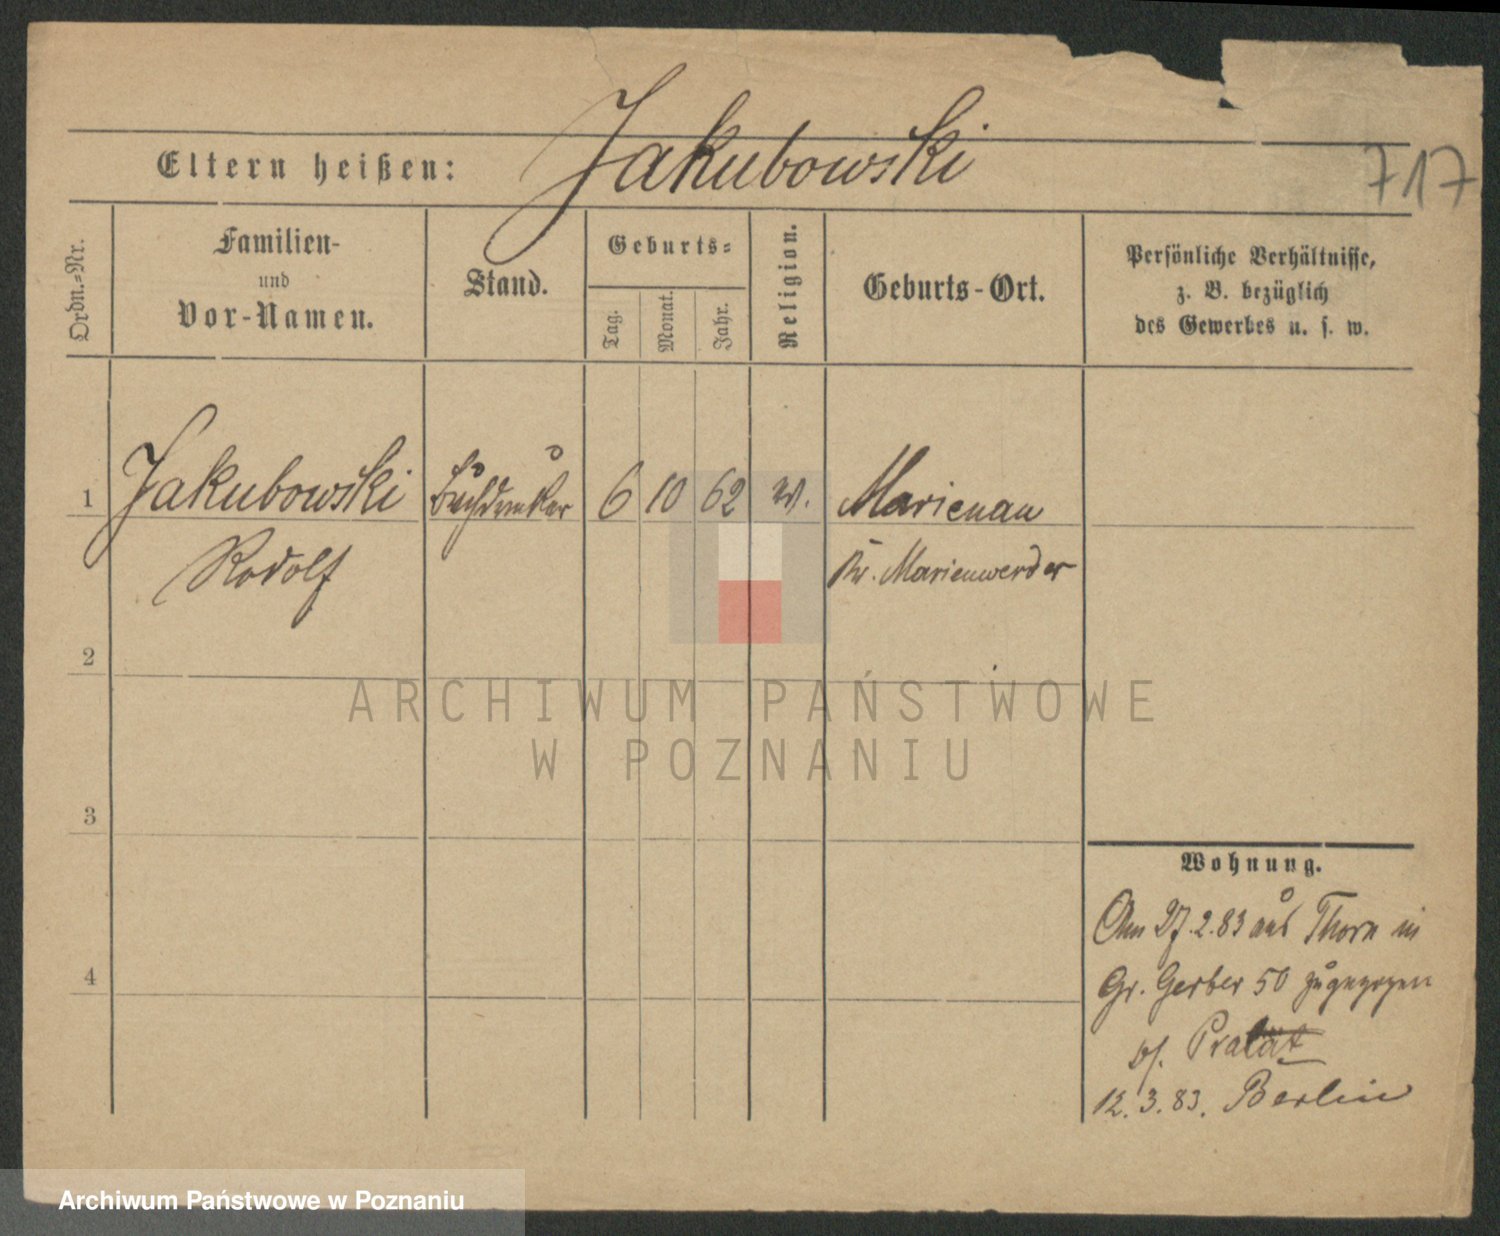 Jakubowski
Eltern heißen:
717
Ordn.=Nr.
Familien-
und
Vor-Namen.
Stand.
Geburts=
Tag.
Monat.
Jahr.
Religion.
Geburts-Ort.
Persönliche Verhältnisse,
z. B. bezüglich
des Gewerbes u. s. w.
1 Jakubowski Buchdruker 6 10 62 Marienau
Rodolf Kr. Marienwerder
2
ARCHIWUM PAŃSTWOWE
W POZNANIU
3
Wohnung.
Am 27.2.83 aus Thorn in
4
Gr. Gerber 50 zugezogen
12.3.83. Berlin
Archiwum Państwowe w Poznaniu